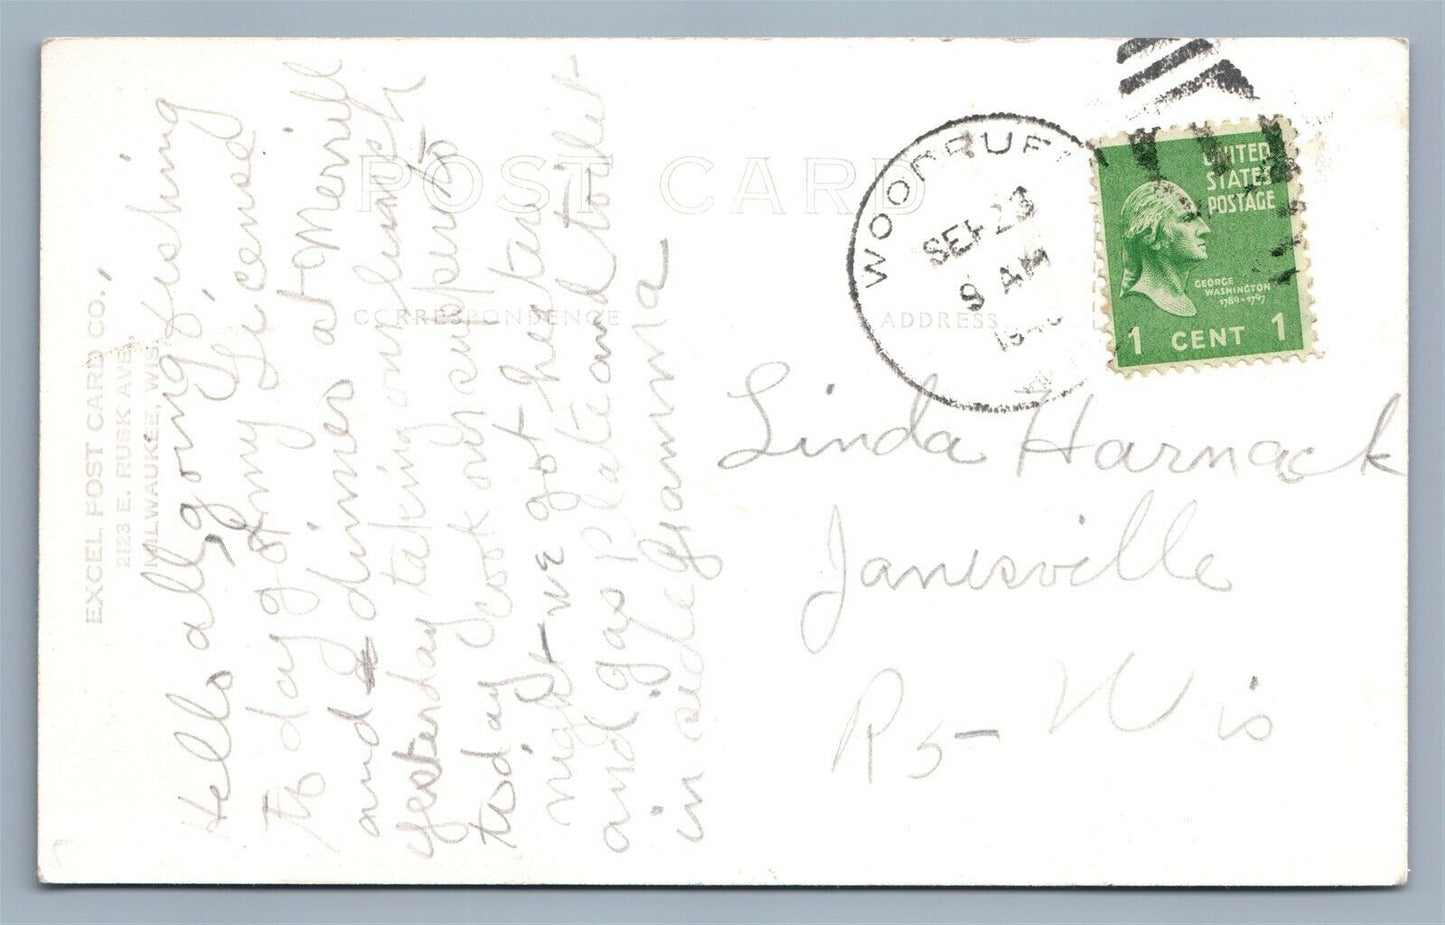 EXCEL POST CARD CO.,
2123 E. RUSK AVE.,
MILWAUKEE, WIS.
POST CARD
CORRESPONDENCE
ADDRESS
Hello all, going fishing
to day got my Licensed
and dimes at Merrill
yesterday taking our lunch
today cook only supper to
night - we got heater
and gas plate and toilet
in side Gramma
WOODRUFF
SEP 23
9 AM
UNITED
STATES
POSTAGE
GEORGE
WASHINGTON
1789-1797
1 CENT 1
Linda Harnack
Janesville
R5- Wis